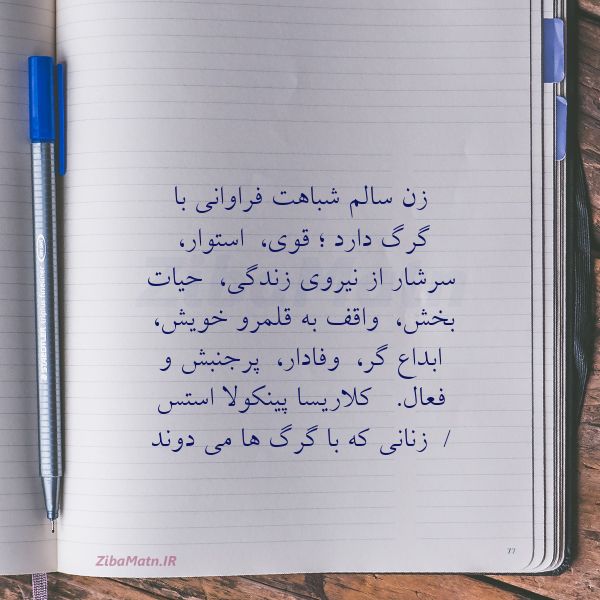 زن سالم شباهت فراوانی با
گرگ دارد ؛ قوی، استوار،
سرشار از نیروی زندگی، حیات
بخش، واقف به قلمرو خویش،
ابداع گر، وفادار، پرجنبش و
فعال. کلاریسا پینکولا استس
/ زنانی که با گرگ ها می دوند
77
ZibaMatn.IR